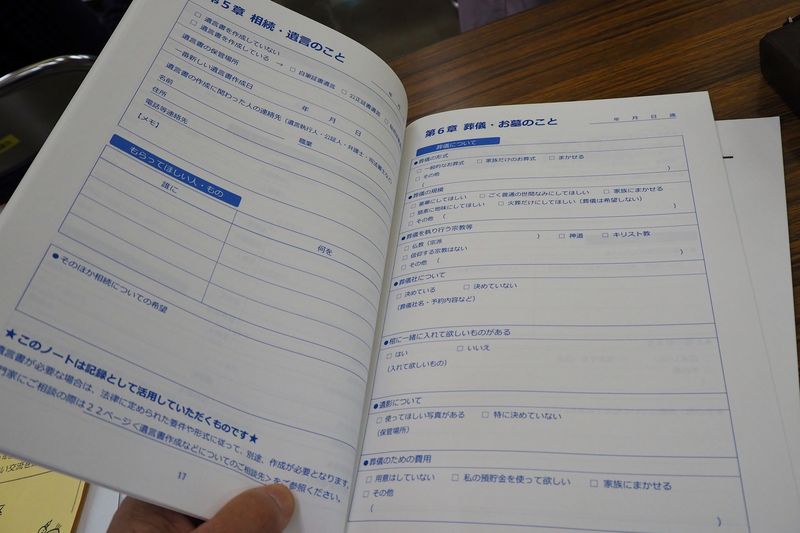 第5章 相続・遺言のこと
年 月
□ 遺言書を作成していない
□ 遺言書を作成している → □ 自筆証書遺言 □ 公正証書遺言
遺言書の保管場所
一番新しい遺言書作成日 年 月 日
遺言書の作成に関わった人の連絡先（遺言執行人・公証人・弁護士・司法書士など
名前 職業
住所
電話等連絡先
【メモ】
もらってほしい人・もの
誰に 何を
●そのほか相続についての希望
★このノートは記録として活用していただくものです★
遺言書が必要な場合は、法律に定められた要件や形式に従って、別途、作成が必要となります。
門家にご相談の際は22ページ＜遺言書作成などについてのご相談先＞をご参照ください。
17
第6章 葬儀・お墓のこと
年 月 日 週
葬儀について
●葬儀の形式
□ 一般的なお葬式 □ 家族だけのお葬式 □ まかせる
□ その他（ ）
●葬儀の規模
□ 豪華にしてほしい □ ごく普通の世間なみにしてほしい □ 家族にまかせる
□ 質素に地味にしてほしい □ 火葬だけにしてほしい（葬儀は希望しない）
□ その他（ ）
●葬儀を執り行う宗教等
□ 仏教（宗派 ） □ 神道 □ キリスト教
□ 信仰する宗教はない
□ その他（ ）
●葬儀社について
□ 決めている □ 決めていない
（葬儀社名・予約内容など）
●棺に一緒に入れて欲しいものがある
□ はい □ いいえ
（入れて欲しいもの）
●遺影について
□ 使ってほしい写真がある □ 特に決めていない
（保管場所）
●葬儀のための費用
□ 用意はしていない □ 私の預貯金を使って欲しい □ 家族にまかせる
□ その他
（ ）